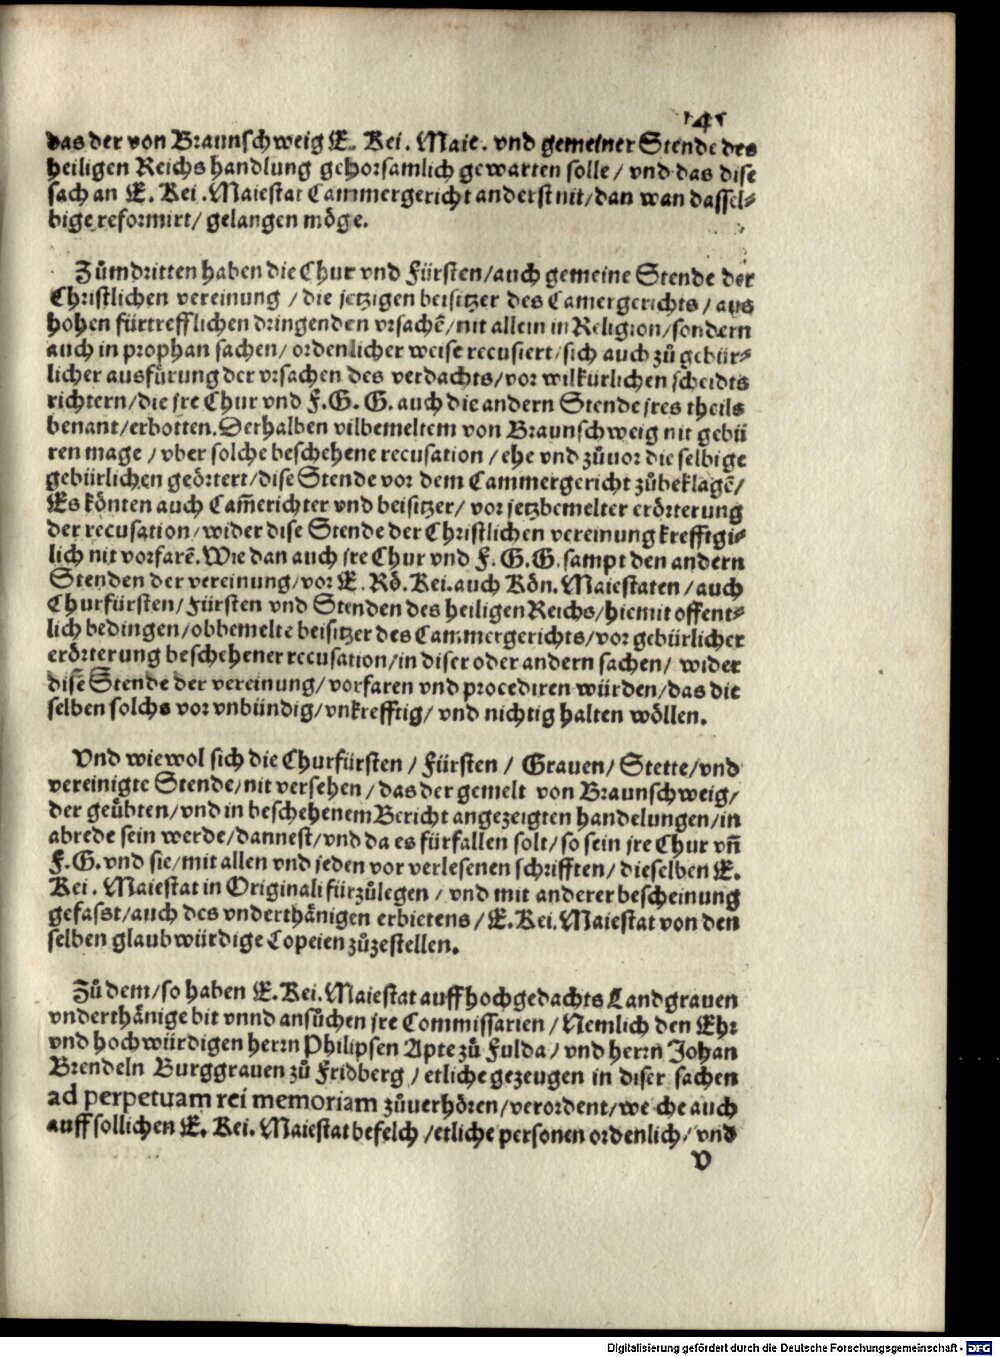 145
das der von Braunschweig E. Kei. Maie. vnd gemeiner Stende des
heiligen Reichs handlung gehorsamlich gewarten solle / vnd das dise
sach an E. Kei. Maiestat Cammergericht anderst nit / dan wan dassel⸗
bige reformirt / gelangen möge.
Zůmdritten haben die Chur vnd Fürsten / auch gemeine Stende der
Christlichen vereinung / die jetzigen beisitzer des Camergerichts / aus
hohen fürtrefflichen dringenden vrsachē / nit allein in Religion / sondern
auch in prophan sachen / ordenlicher weise recusiert / sich auch zů gebür⸗
licher ausfürung der vrsachen des verdachts / vor wilkürlichen scheidts
richtern / die jre Chur vnd F. G. G. auch die andern Stende jres theils
benant / erbotten. Derhalben vilbemeltem von Braunschweig nit gebü
ren mage / vber solche beschehene recusation / ehe vnd zůuor die selbige
gebürlichen geörtert / dise Stende vor dem Cammergericht zůbeklagē /
Es könten auch Cam̄erichter vnd beisitzer / vor jetzbemelter erörterung
der recusation / wider dise Stende der Christlichen vereinung krefftgi⸗
lich nit vorfarē. Wie dan auch jre Chur vnd F. G. G. sampt den andern
Stenden der vereinung / vor E. Rö. Kei. auch Kön. Maiestaten / auch
Churfürsten / Fürsten vnd Stenden des heiligen Reichs / hiemit offent⸗
lich bedingen / ob bemelte beisitzer des Cammergerichts / vor gebürlicher
erörterung beschehener recusation / in diser oder andern sachen / wider
dise Stende der vereinung / vorfaren vnd procediren würden / das die
selben solchs vor vnbündig / vnkrefftig / vnd nichtig halten wöllen.
Vnd wiewol sich die Churfürsten / Fürsten / Grauen / Stette / vnd
vereinigte Stende / nit versehen / das der gemelt von Braunschweig /
der geůbten / vnd in beschehenem Bericht angezeigten handelungen / in
abrede sein werde / dannest / vnd da es fürfallen solt / so sein jre Chur vn̄
F. G. vnd sie / mit allen vnd jeden vor verlesenen schrifften / dieselben E.
Kei. Maiestat in Originali fürzůlegen / vnd mit anderer bescheinung
gefasst / auch des vnderthänigen erbietens / E. Kei. Maiestat von den
selben glaubwürdige Copeien zůzestellen.
Zů dem / so haben E. Kei. Maiestat auff hochgedachts Landgrauen
vnderthänige bit vnnd ansůchen jre Commissarien / Nemlich den Ehr
vnd hochwürdigen herrn Philipsen Apte zů Fulda / vnd herrn Johan
Brendeln Burggrauen zů Fridberg / etliche gezeugen in diser sachen
ad perpetuam rei memoriam zůuerhören / verordent / welche auch
auff sollichen E. Kei. Maiestat befelch / etliche personen ordenlich / vnd
V
Digitalisierung gefördert durch die Deutsche Forschungsgemeinschaft - DFG